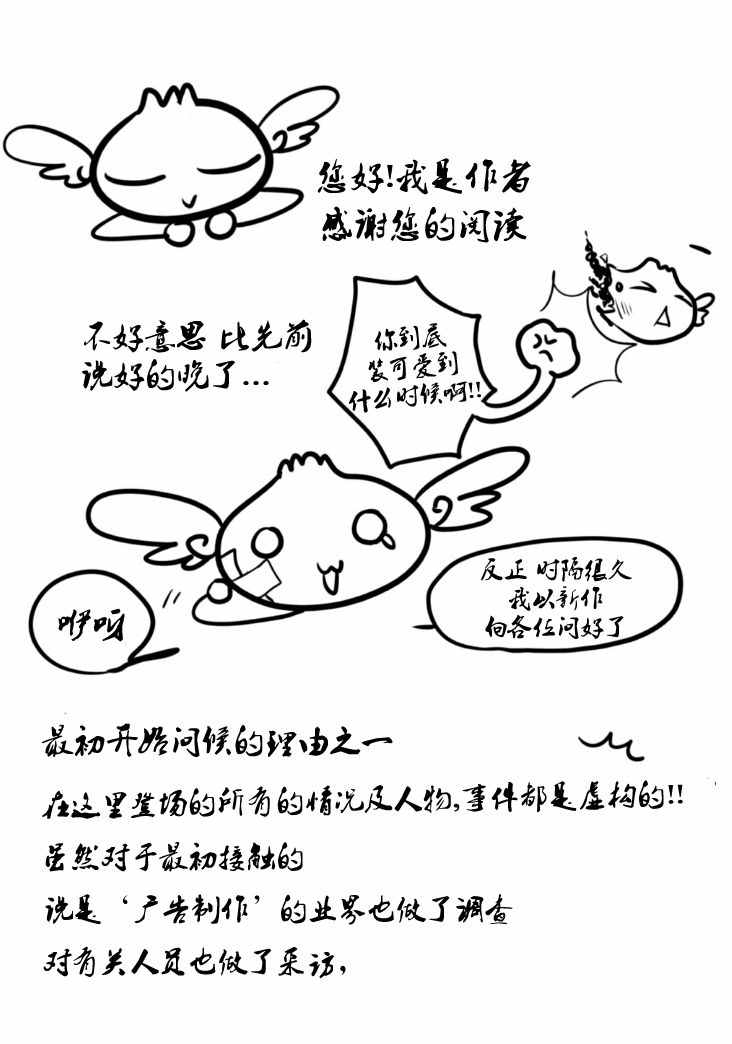 您好!我是作者
感谢您的阅读
不好意思 比先前
说好的晚了...
你到底
装可爱到
什么时候啊!!
反正 时隔很久
我以新作
向各位问好了
咿呀
最初开始问候的理由之一
在这里登场的所有的情况及人物,事件都是虚构的!!
虽然对于最初接触的
说是‘广告制作’的业界也做了调查
对有关人员也做了采访,